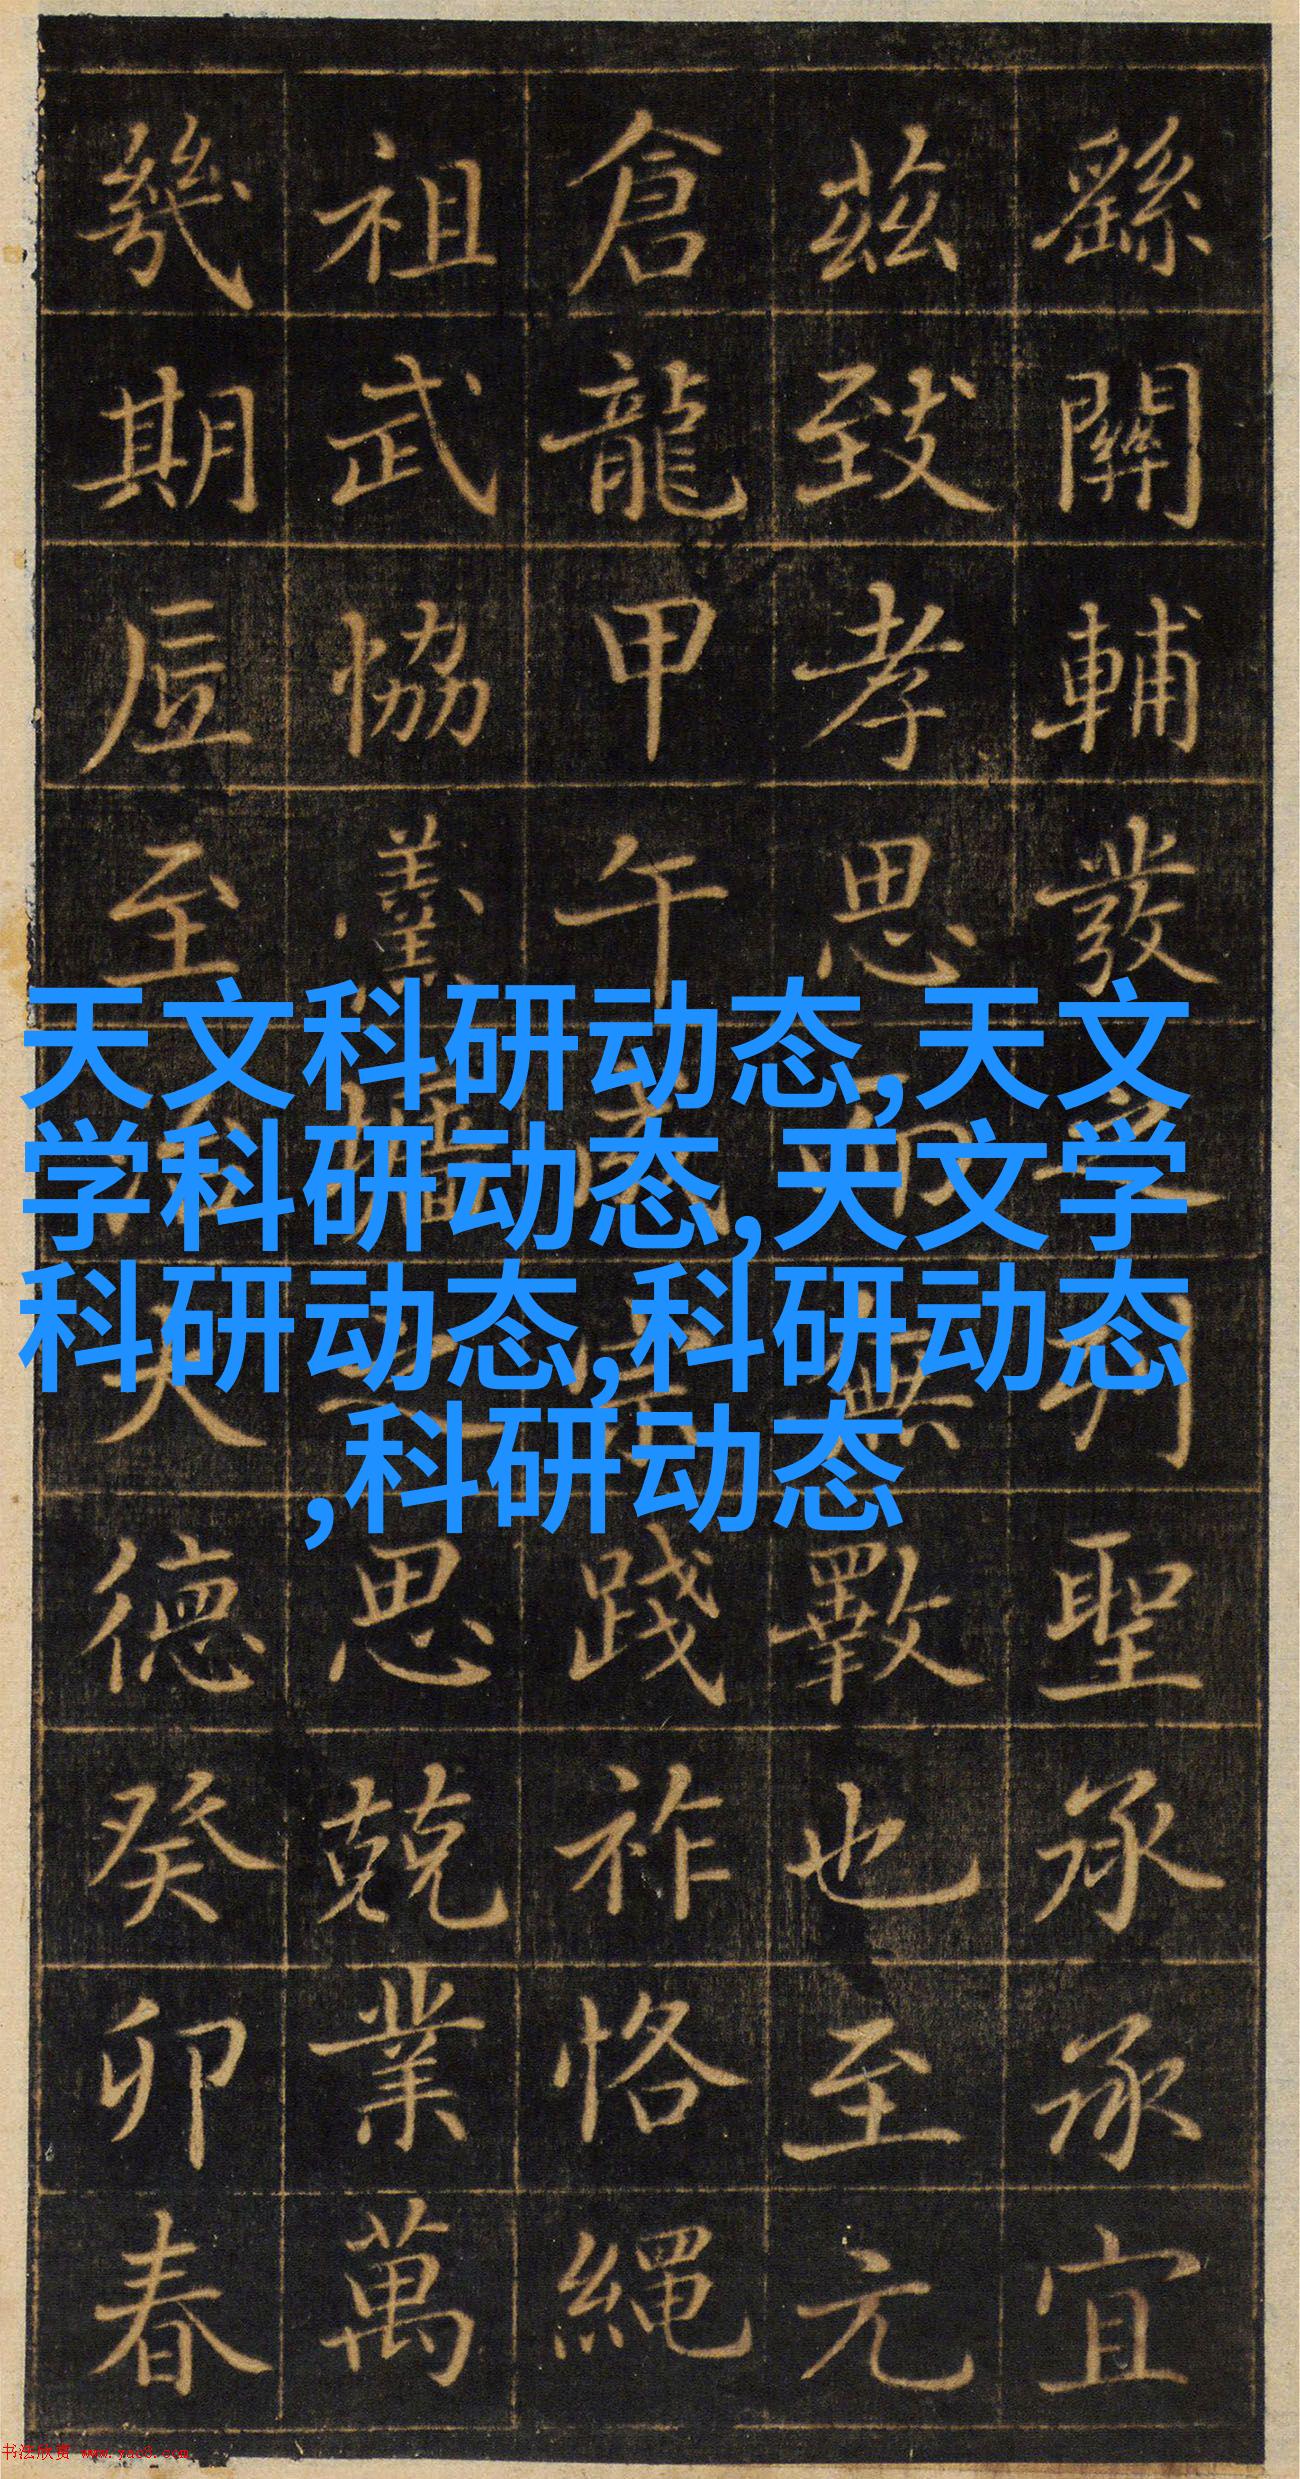 天文科研动态,天文
学科研动态,天文学
科研动态,科研动态
,科研动态
繇關輔發聖承承宜
茲致孝思而無斁也至元
倉龍甲午踐祚恪繩
祖武協羹牆之思兢業萬
幾期至大德癸卯春
书法欣赏 www.yac8.com